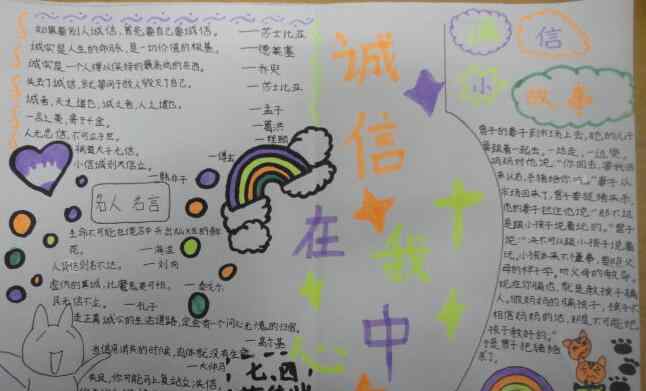 如果要别人诚信，首先要自己要诚信。
——莎士比亚
诚实是人生的命脉，是一切价值的根基。
——德莱塞
诚实是一个人得以保持的最高尚的东西。
——乔叟
失去了诚信，就等同于敌人毁灭了自己。
——莎士比亚
诚者，天之道也，诚之者，人之道也。
——孟子
一言之美，贵于千金。
——葛洪
人无忠信，不可立于世。
——程颐
祸莫大于无信。
——傅玄
小信诚则大信立。
——韩非子
名人名言
生命不可能在谎言中开出灿烂的鲜花。
——海涅
人背信则名不达。
——刘向
虚伪的真诚，比魔鬼更可怕。
——泰戈尔
民无信不立。
——孔子
走正直诚实的生活道路，定会有一个问心无愧的归宿。
——高尔基
当信用消失的时候，肉体就没有生命。
——大仲马
失足，你可能马上复站立，失信，
七、四
诚信在我心中
诚信小故事
曾子的妻子到市场上去，她的儿子
要跟着一起去，一边走，一边哭。
妈妈对他说：“你回去，等我回
来以后，杀猪给你吃。”妻子从
市场回来了，曾子要捉猪来杀，
他的妻子拦住他说：“那不过
是跟小孩子说着玩的。”曾子
说：“决不可以跟小孩子说着
玩。小孩本来不懂事，要照父
母的样子学，听父母的教导。
现在你骗他，就是教孩子骗
人。做妈妈的骗孩子，孩子不
相信妈妈的话，那是不可能把
孩子教好的。”
于是曾子把猪给
杀了。